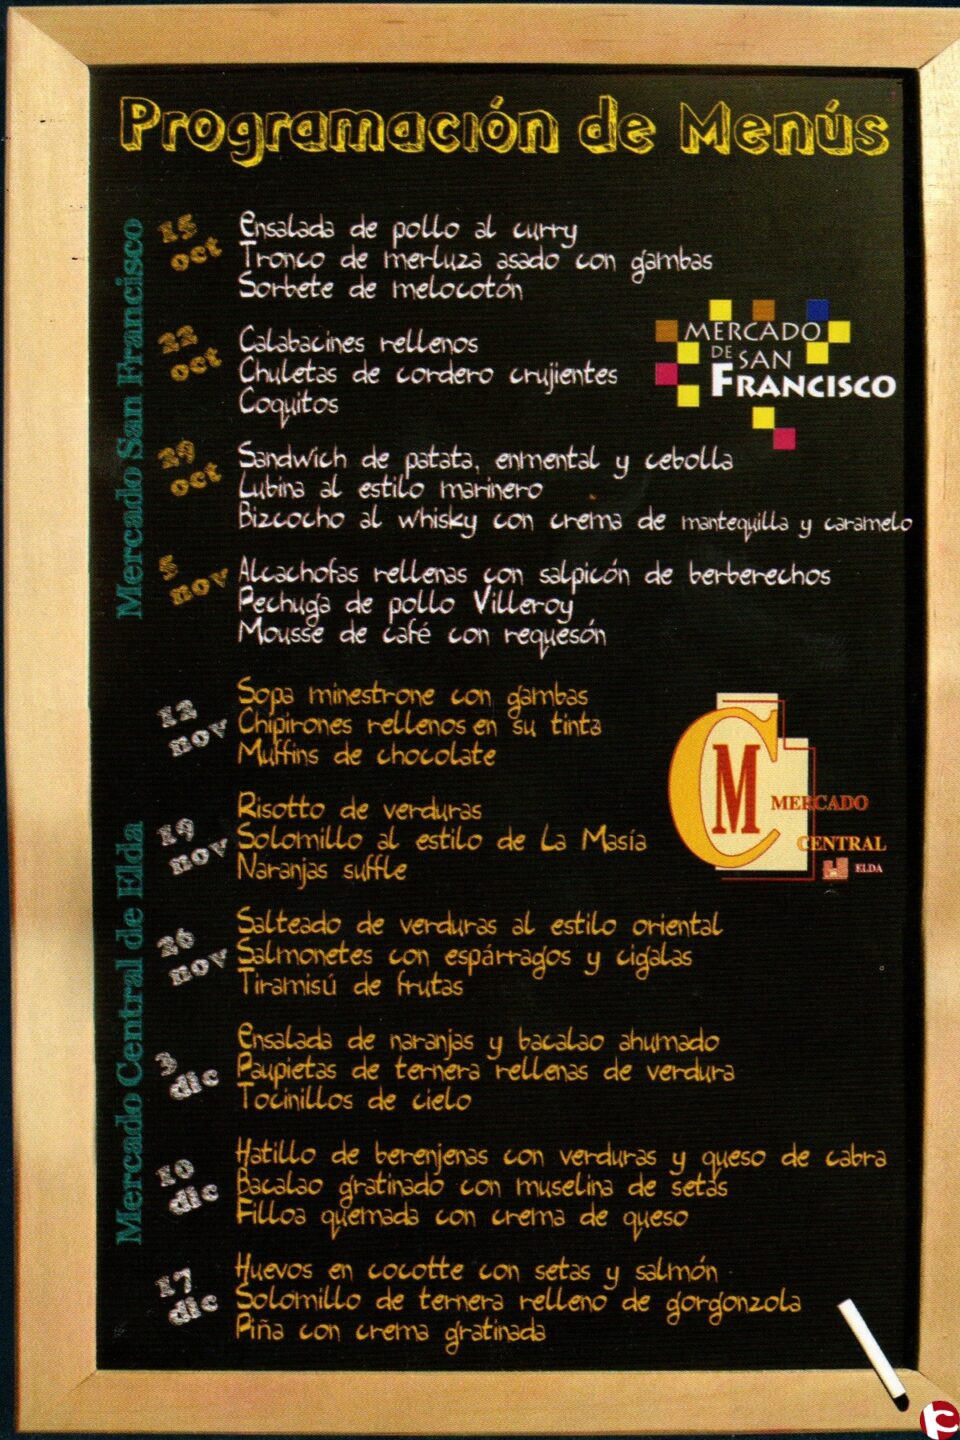 Programación de Menús
Mercado San Francisco
15 oct
Ensalada de pollo al curry
Tronco de merluza asado con gambas
Sorbete de melocotón
22 oct
Calabacines rellenos
Chuletas de cordero crujientes
Coquitos
MERCADO
DE SAN
FRANCISCO
29 oct
Sandwich de patata, enmental y cebolla
Lubina al estilo marinero
Bizcocho al whisky con crema de mantequilla y caramelo
5 nov
Alcachofas rellenas con salpicón de berberechos
Pechuga de pollo Villeroy
Mousse de café con requesón
Mercado Central de Elda
12 nov
Sopa minestrone con gambas
Chipirones rellenos en su tinta
Muffins de chocolate
CM
MERCADO
CENTRAL
ELDA
19 nov
Risotto de verduras
Solomillo al estilo de La Masía
Naranjas suffle
26 nov
Salteado de verduras al estilo oriental
Salmonetes con espárragos y cigalas
Tiramisú de frutas
3 dic
Ensalada de naranjas y bacalao ahumado
Paupietas de ternera rellenas de verdura
Tocinillos de cielo
10 dic
Hatillo de berenjenas con verduras y queso de cabra
Bacalao gratinado con muselina de setas
Filloa quemada con crema de queso
17 dic
Huevos en cocotte con setas y salmón
Solomillo de ternera relleno de gorgonzola
Piña con crema gratinada